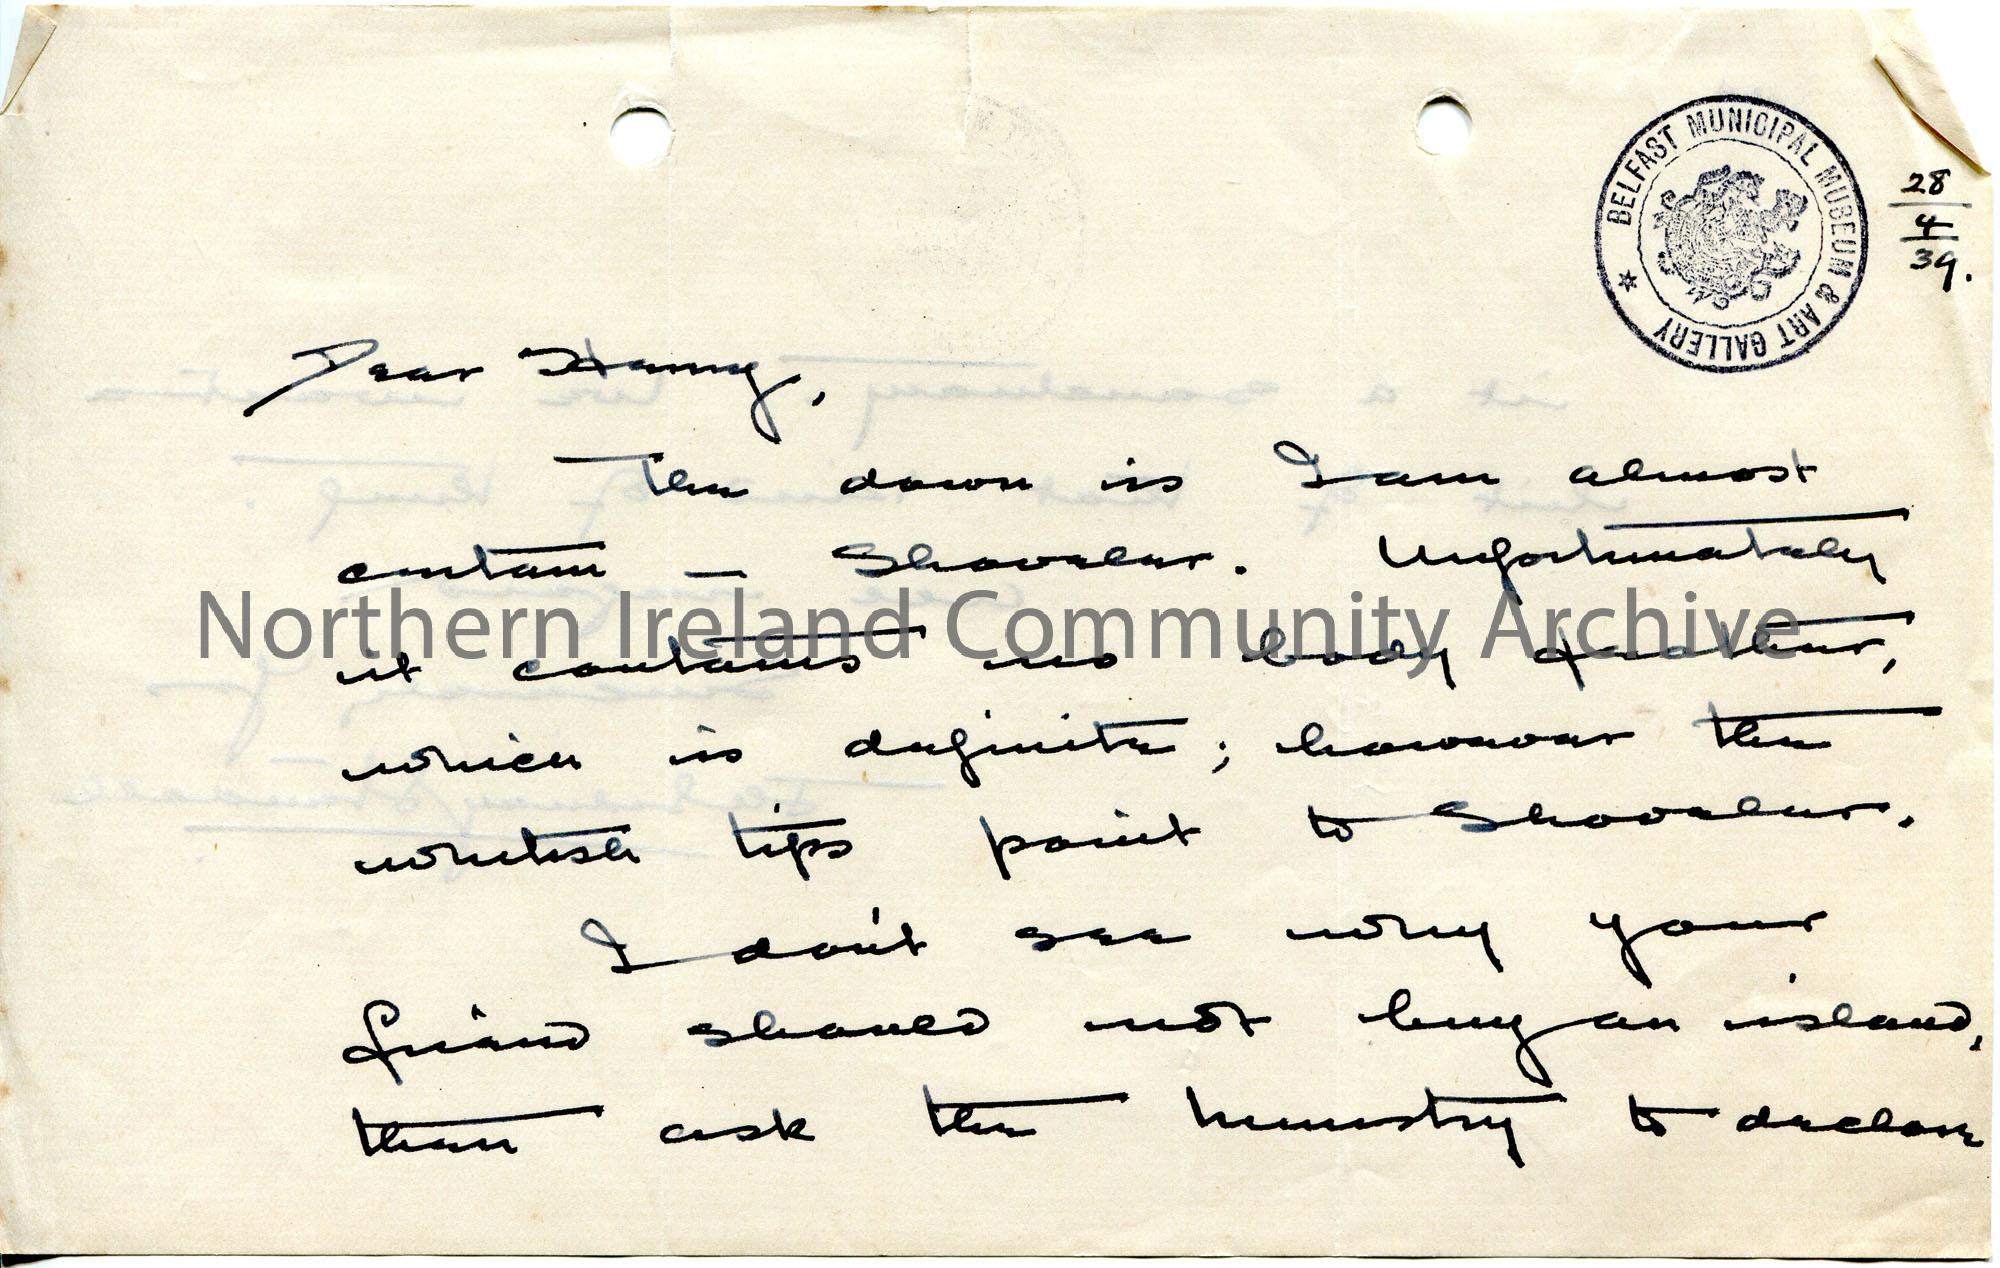 BELFAST MUNICIPAL MUSEUM & ART GALLERY
28
4
39.
Dear Harry,
The down is I am almost
certain — Shoveler. Unfortunately
Northern Ireland Community Archive
it contains no body feather,
which is definite; however the
whitish tips point to Shoveler.
I don't see why your
friend should not buy an island,
then ask the Ministry to declare